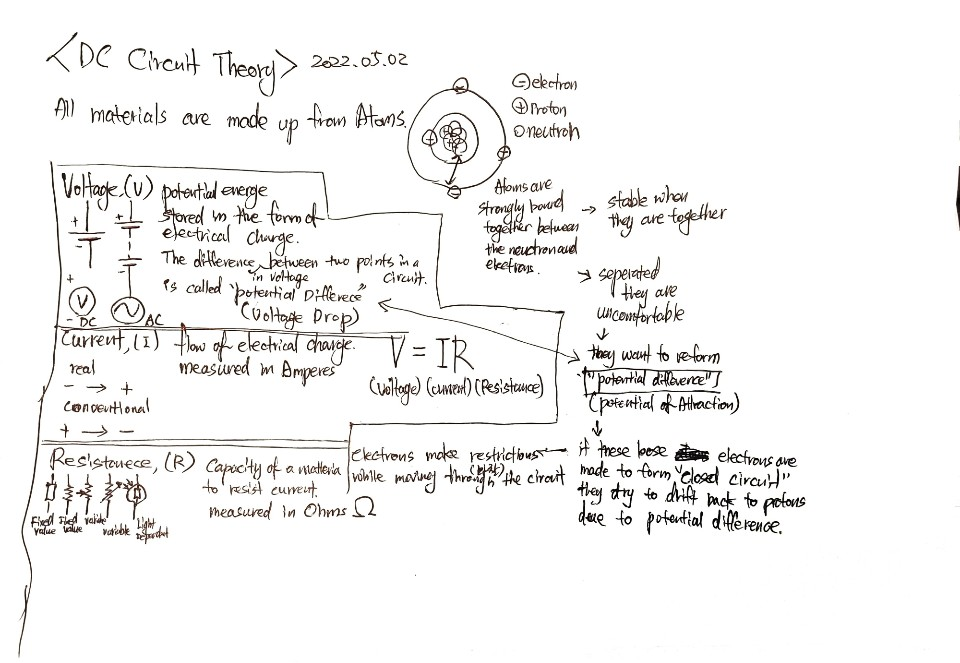 <DC Circuit Theory> 2022.05.02
All materials are made up from Atoms.
⊖electron
⊕Proton
○neutron
Atoms are
strongly bound
together between
the neuctron and
electrons.
→ stable when
they are together
→ seperated
they are
uncomfortable
↓
they want to reform
["potential difference"]
(potential of Attraction)
↓
if these loose electrons are
made to form "closed circuit"
they dry to drift back to protons
due to potential difference.
Voltage, (V) potential energe
stored in the form of
electrical charge.
The difference between two points in a
in voltage circuit.
is called "potential Differece"
(Voltage Drop)
+
+
+
V
- DC
AC
Current, (I) flow of electrical charge.
measured in Amperes
real
- → +
conventional
+ → -
V = IR
(Voltage) (current) (Resistance)
Resistanece, (R) Capacity of a matteria
to resist current.
measured in Ohms Ω
Fixed
value
Fixed
value
variable
Light
electrons make restrictions
while moving through the circuit